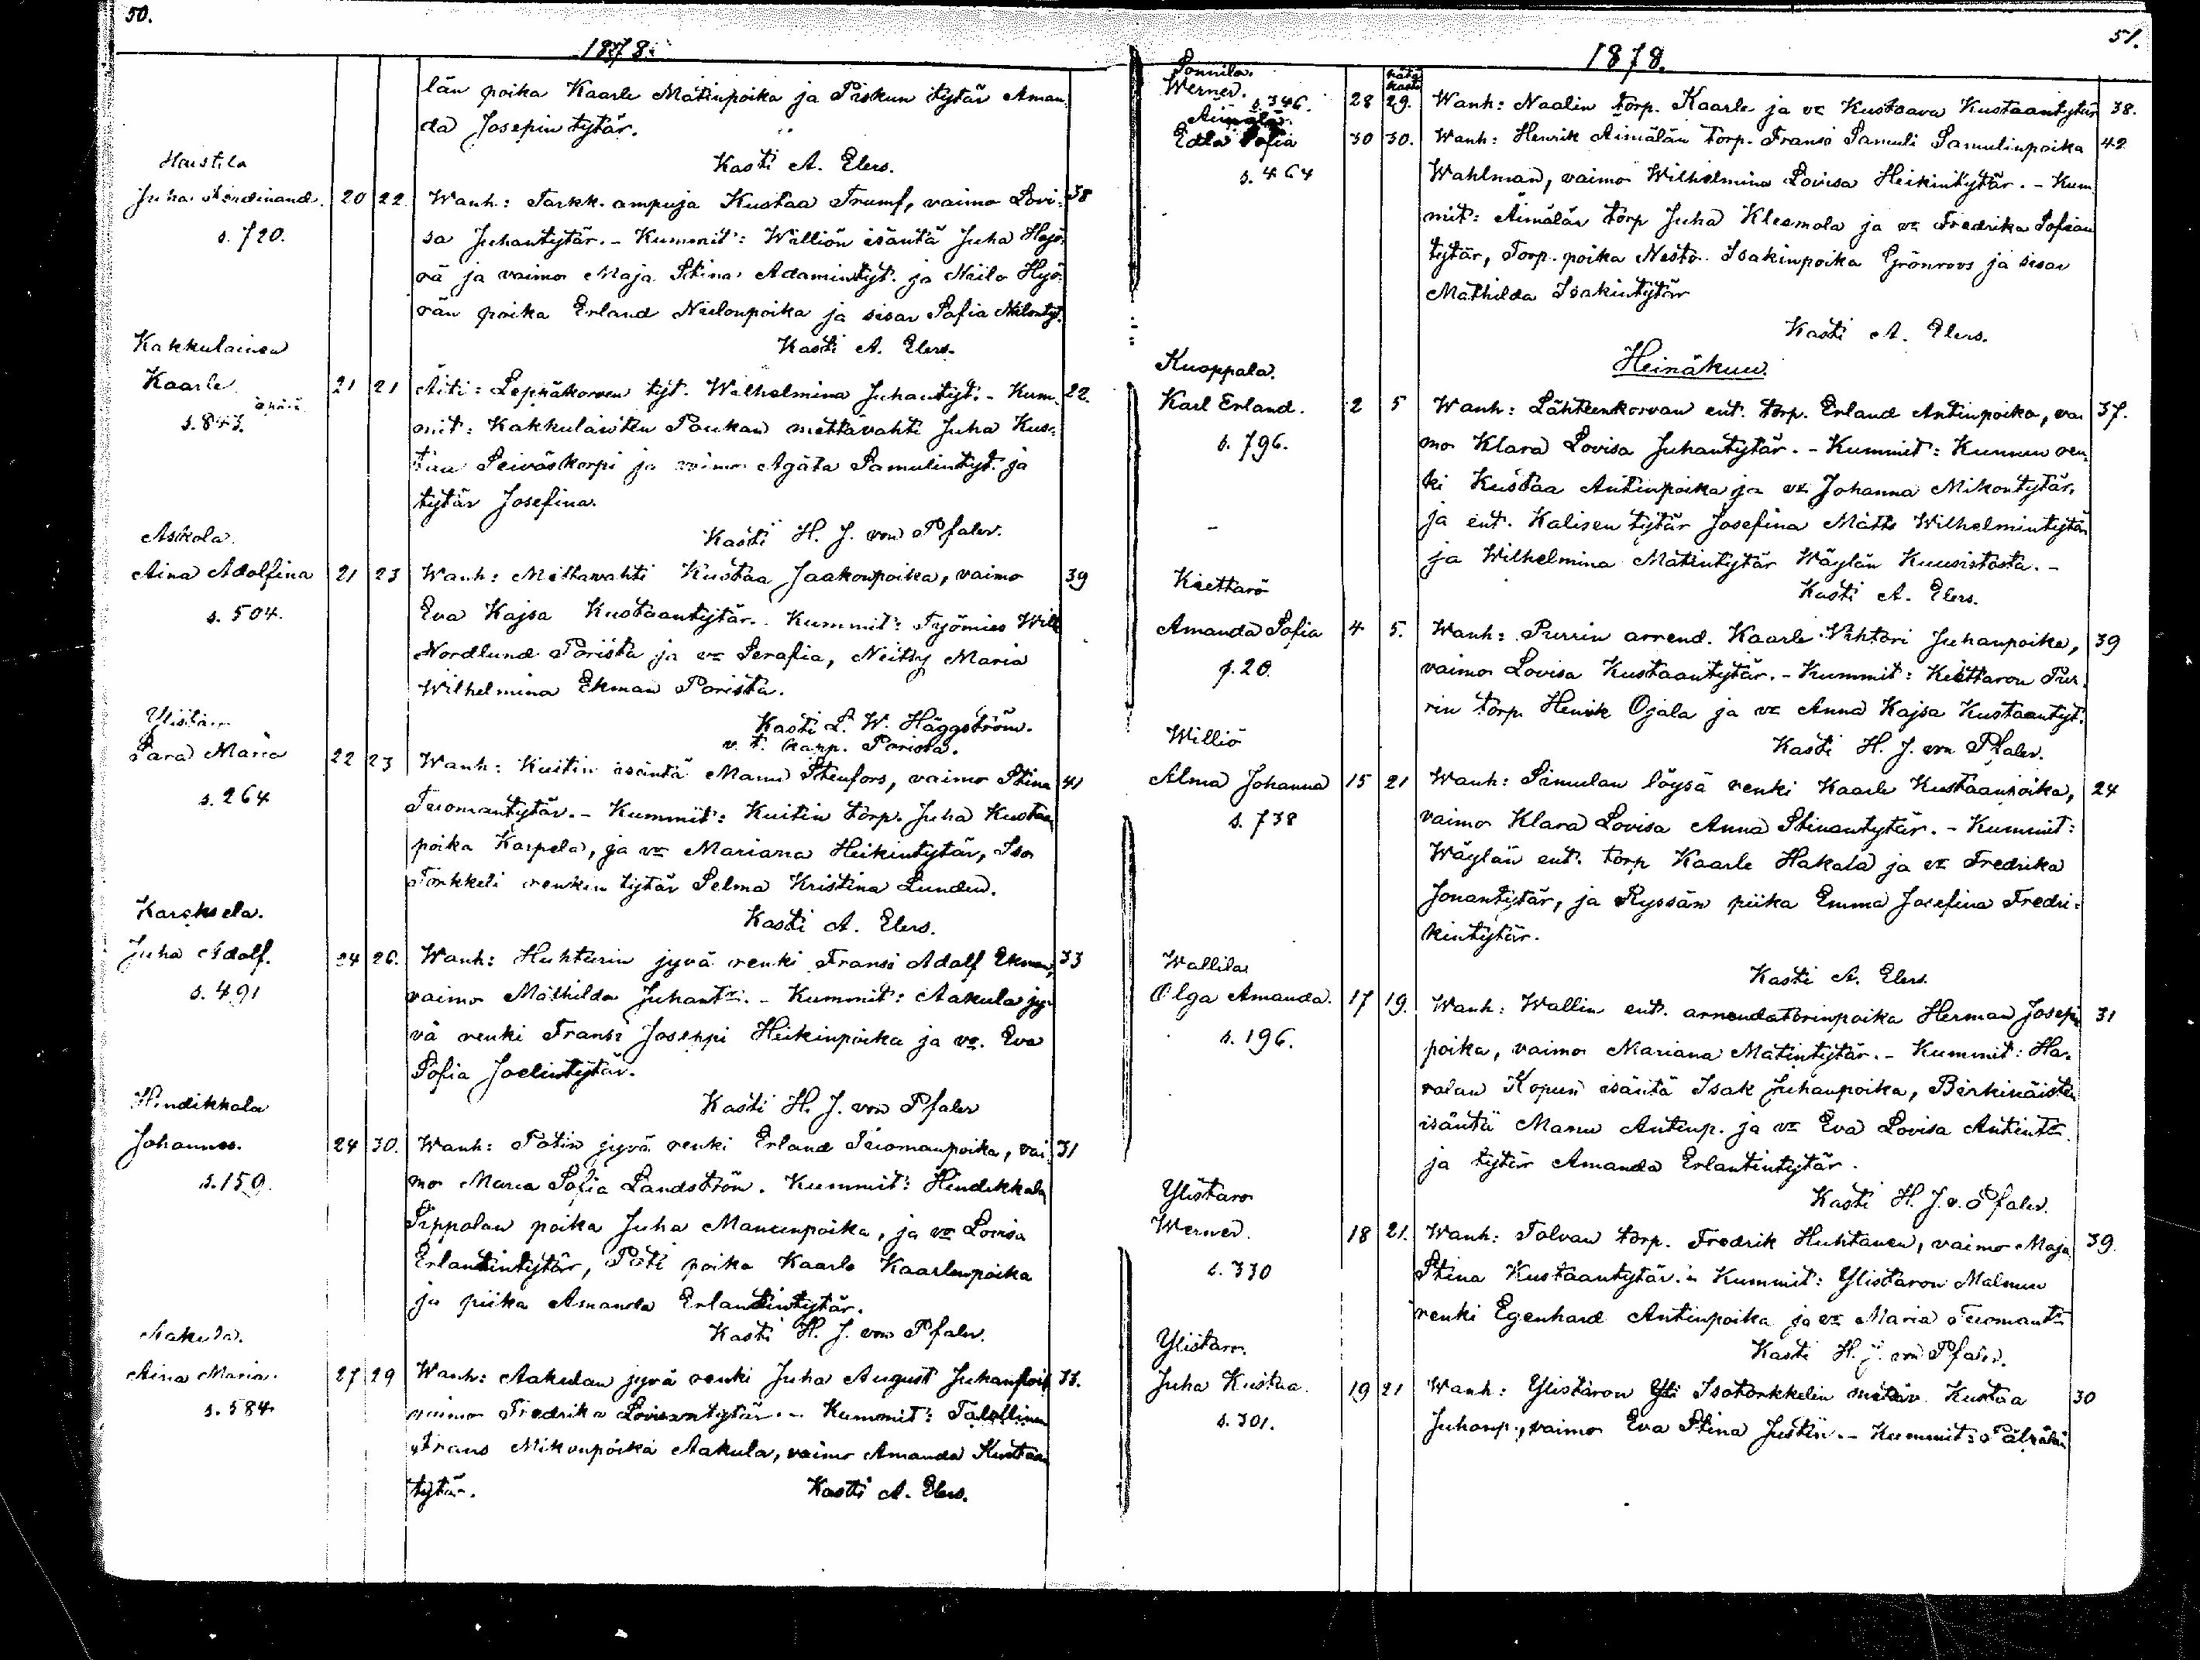 50.
1878.
län poika Kaarle Matinpoika ja Piskun tytär Aman
da Josepin tytär.
Kasti A. Elers.
Haistila
Juha Ferdinand. 20 22 Wanh: Tarkk. ampuja Kustaa Trumf, vaimo Lovi- 38
s. 720. sa Juhantytär. - Kummit: Williön isäntä Juha Hyö-
vä ja vaimo Maja Stina Adamintyt. ja Niilo Hyö-
vän poika Erland Niilonpoika ja sisar Sofia Nilontyt.
Kasti A. Elers.
Kakkulainen
Kaarle 21 21 Äiti: Lepnäkorven tyt. Wilhelmina Juhantyt. - Kum- 22.
s. 843. mit: Kakkulaisten Paukan mettavahti Juha Kus-
taa Seiväskorpi ja vaimo Agata Samulintyt. ja
tytär Josefina.
Kasti H. J. von Pfaler.
Asikola
Aina Adolfina 21 23 Wanh: Mettavahti Kustaa Jaakonpoika, vaimo 39
s. 504. Eva Kajsa Kustaantytär. Kummit: Työmies Wilh
Nordlund Porista ja vo Serafia, Neitsy Maria
Wilhelmina Ekman Porista.
Kasti L. W. Häggström.
v. t. kapp. Porista.
Ylistaro
Sara Maria 22 23 Wanh: Kuitin isäntä Manu Stenfors, vaimo Stina 41
s. 264 Tuomantytär. - Kummit: Kuitin torp. Juha Kustaan
poika Karpela, ja vo Mariana Heikintytär, Iso
Torkkeli renkin tytär Selma Kristina Lunden.
Kasti A. Elers.
Karoksela.
Juha Adolf. 24 26. Wanh: Huhturin jyvä renki Fransi Adolf Ekman, 33
s. 491 vaimo Mathilda Juhantr. - Kummit: Aakula jy-
vä renki Fransi Joseppi Heikinpoika ja vo. Eva
Sofia Joelintytär.
Kasti H. J. von Pfaler
Hindikkala
Johannes. 24 30. Wanh: Potin jyvä renki Erland Tuomanpoika, vai- 31
s. 159. mo Maria Sofia Landström. Kummit: Hindikkala
Sippolan poika Juha Manunpoika, ja vo Lovisa
Erlantintytär, Poti poika Kaarle Kaarlenpoika
ja piika Amanda Erlantintytär.
Kasti H. J. von Pfaler.
Aakula.
Aina Maria. 27 29 Wanh: Aakulan jyvä renki Juha August Juhanpoik 33.
s. 584. vaimo Fredrika Lovisantytär. - Kummit: Talollinen
Frans Mikonpoika Aakula, vaimo Amanda Kustaan
tytär. Kasti A. Elers.
51.
1878.
Sonnila.
Werner. 28 29. Wanh: Naalin torp. Kaarle ja vo Kustaava Kustaantytär 38.
s. 346.
hätä kasti
Aimälä.
Edla Sofia 30 30. Wanh: Henrik Aimälän torp. Fransi Samuli Samulinpoika 42
s. 464 Wahlman, vaimo Wilhelmina Lovisa Heikintytär. - Kum
mit: Aimälän torp Juha Kleemola ja vo Fredrika Sofian
tytär, Torp. poika Nesto Isakinpoika Grönroos ja sisar
Mathilda Isakintytär
Kasti A. Elers.
Heinäkuu.
Kuoppala.
Karl Erland. 2 5 Wanh: Lähteenkorvan ent. torp. Erland Antinpoika, vai 37.
s. 796. mo Klara Lovisa Juhantytär. - Kummit: Kunnun ren-
ki Kustaa Antinpoika ja vo Johanna Mikontytär,
ja ent. Kalisen tytär Josefina Matts Wilhelmintytär
ja Wilhelmina Matintytär Wäylän Kuusistosta. -
Kasti A. Elers.
Kiettarö
Amanda Sofia 4 5. Wanh: Purrin arrend. Kaarle Vihtori Juhanpoika, 39
s. 20. vaimo Lovisa Kustaantytär. - Kummit: Kiettaron Pur-
rin torp. Henrik Ojala ja vo Anna Kajsa Kustaantyt.
Kasti H. J. von Pfaler.
Williö
Alma Johanna 15 21 Wanh: Simulan löysä renki Kaarle Kustaanpoika, 24
s. 738 vaimo Klara Lovisa Anna Stinantytär. - Kummit:
Wäylän ent. torp Kaarle Hakala ja vo Fredrika
Jonantytär, ja Ryssän piika Emma Josefina Fredri-
kintytär.
Kasti A. Elers.
Wallila
Olga Amanda. 17 19. Wanh: Wallin ent. arrendatorinpoika Herman Josepin 31
s. 196. poika, vaimo Mariana Matintytär. - Kummit: Ha-
valan Kopun isäntä Isak Juhanpoika, Birkinäisten
isäntä Manu Antinp. ja vo Eva Lovisa Antintr.
ja tytär Amanda Erlantintytär.
Kasti H. J. v. Pfaler.
Ylistaro
Werner. 18 21. Wanh: Tolvan torp. Fredrik Huhtanen, vaimo Maja 39.
s. 330 Stina Kustaantytär. - Kummit: Ylistaron Malmun
renki Egenhard Antinpoika ja vo Maria Tuomantr
Kasti H. J. von Pfaler.
Ylistaro.
Juha Kustaa. 19 21 Wanh: Ylistaron Yli Isotorkkelin mäkär. Kustaa 30
s. 301. Juhanp., vaimo Eva Stina Justin. - Kummit: